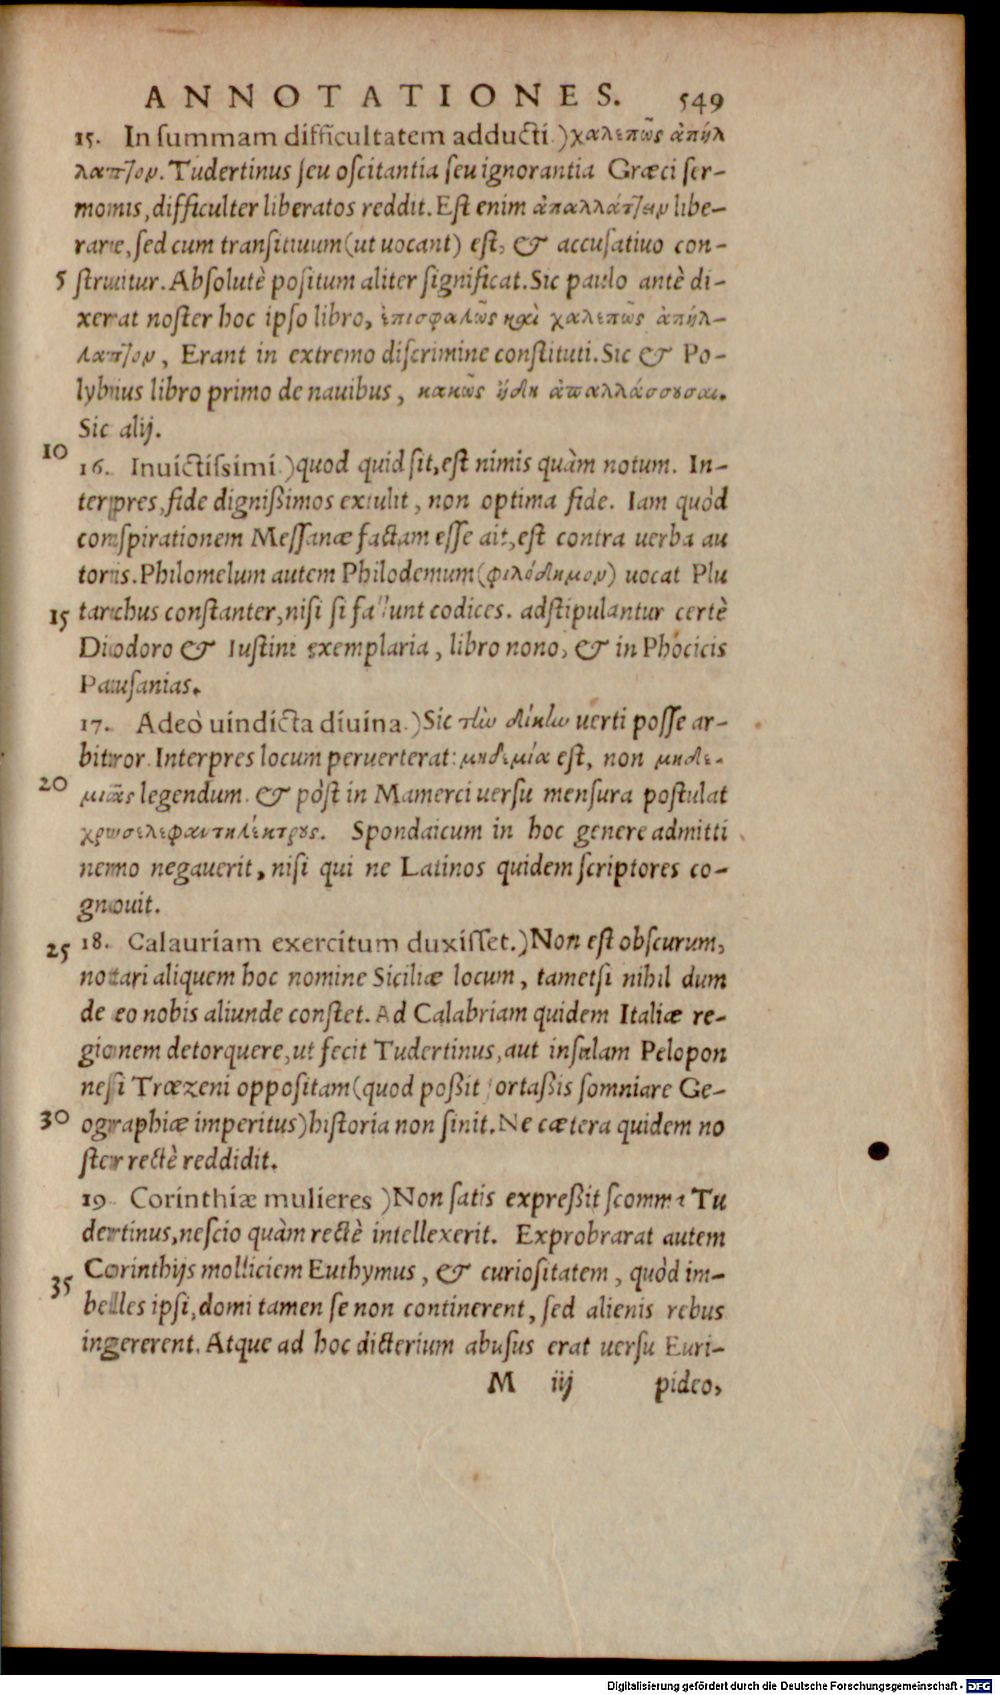 ANNOTATIONES. 549
15. In summam difficultatem adducti.) χαλεπῶς ἀπήλ
λαττον. Tudertinus seu oscitantia seu ignorantia Græci ser-
monis, difficulter liberatos reddit. Est enim ἀπαλλάττειν libe-
rare, sed cum transitiuum (ut uocant) est, & accusatiuo con-
5 struitur. Absolutè positum aliter significat. Sic paulo antè di-
xerat noster hoc ipso libro, ἐπισφαλῶς καὶ χαλεπῶς ἀπήλ-
λαττον, Erant in extremo discrimine constituti. Sic & Po-
lybius libro primo de nauibus, κακῶς ἤδη ἀπαλλάσσουσαι.
Sic alij.
10
16. Inuictissimi.) quod quid sit, est nimis quàm notum. In-
terpres, fide dignißimos extulit, non optima fide. Iam quòd
conspirationem Messanæ factam esse ait, est contra uerba au
toris. Philomelum autem Philodemum (φιλόδημον) uocat Plu
15 tarchus constanter, nisi si fallunt codices. adstipulantur certè
Diodoro & Iustini exemplaria, libro nono, & in Phocicis
Pausanias.
17. Adeò uindicta diuina.) Sic τὼ δίκὼ uerti posse ar-
bitror. Interpres locum peruerterat: μηδεμία est, non μηδε-
20 μιᾶς legendum. & pòst in Mamerci uersu mensura postulat
χρυσελεφαντηλέκτρους. Spondaicum in hoc genere admitti
nemo negauerit, nisi qui ne Latinos quidem scriptores co-
gnouit.
25 18. Calauriam exercitum duxisset.) Non est obscurum,
notari aliquem hoc nomine Siciliæ locum, tametsi nihil dum
de eo nobis aliunde constet. Ad Calabriam quidem Italiæ re-
gionem detorquere, ut fecit Tudertinus, aut insulam Pelopon
nesi Trœzeni oppositam (quod poßit fortaßis somniare Ge-
30 ographiæ imperitus) historia non sinit. Ne cætera quidem no
ster rectè reddidit.
19 Corinthiæ mulieres) Non satis expreßit scomma Tu
dertinus, nescio quàm rectè intellexerit. Exprobrarat autem
Corinthijs molliciem Euthymus, & curiositatem, quòd im-
35 belles ipsi, domi tamen se non continerent, sed alienis rebus
ingererent. Atque ad hoc dicterium abusus erat uersu Euri-
M iij pideo,
Digitalisierung gefördert durch die Deutsche Forschungsgemeinschaft - DFG